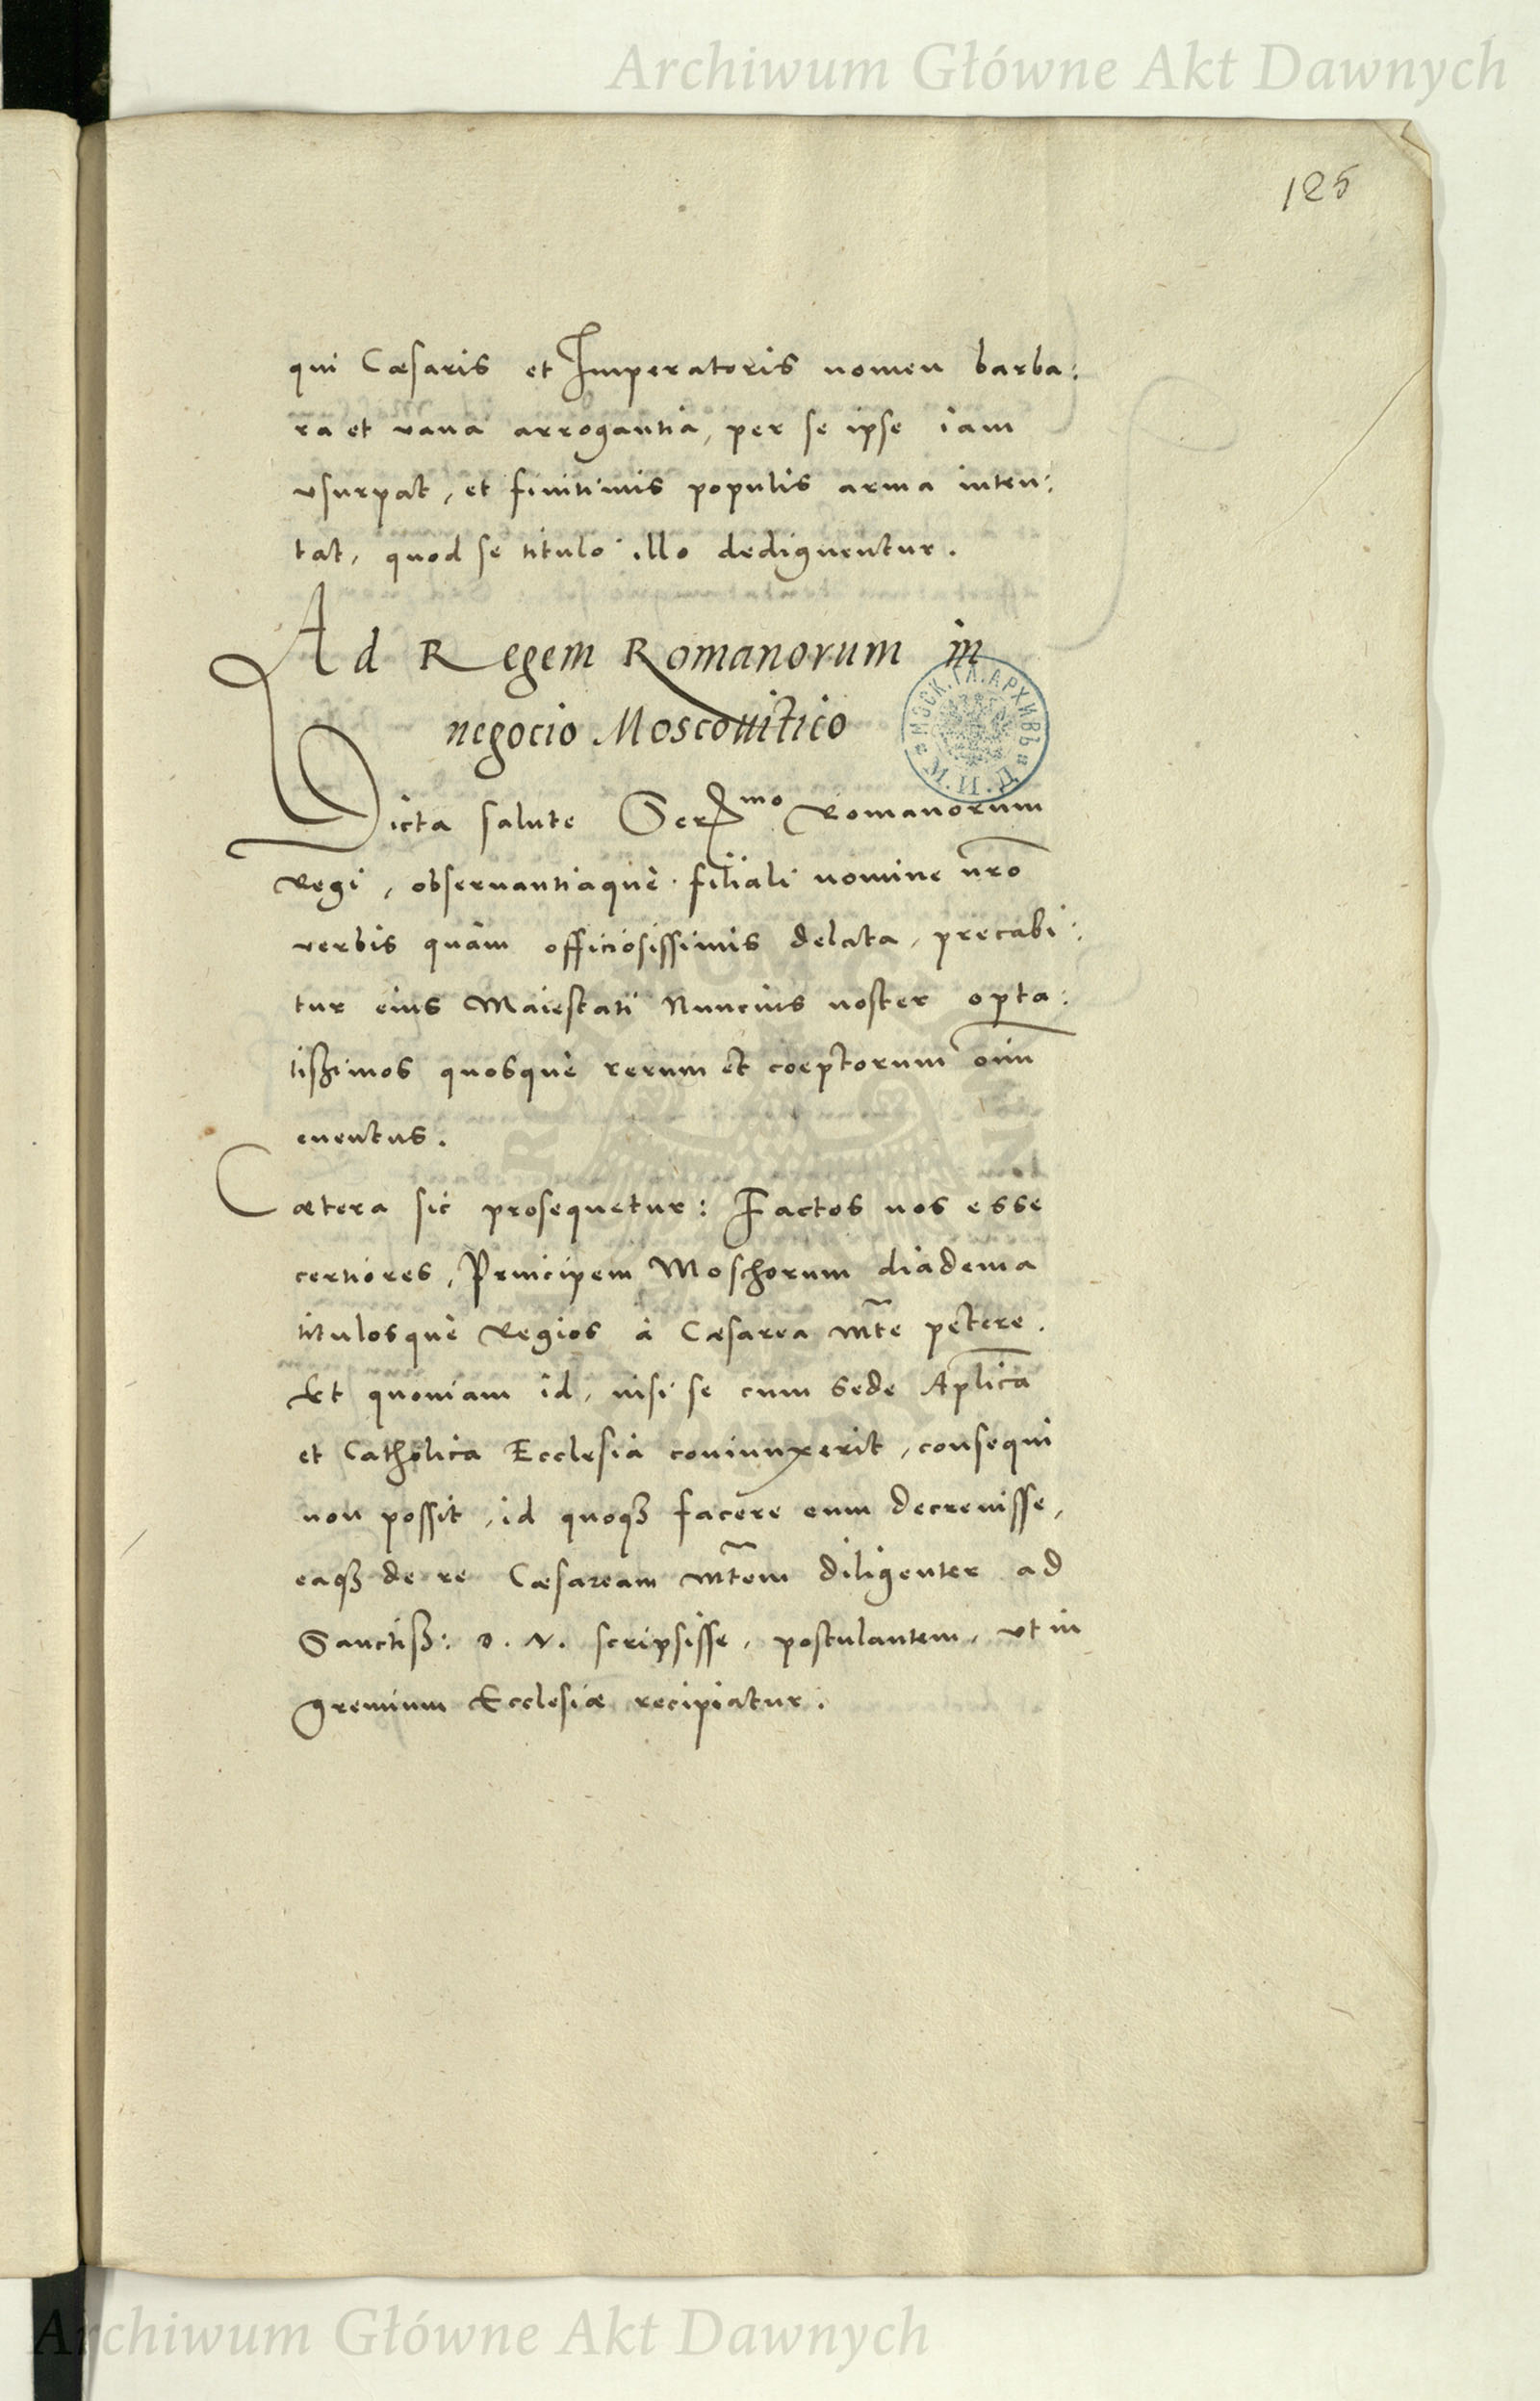 Archiwum Główne Akt Dawnych
125
qui Cæsaris et Imperatoris nomen barba:
ra et vana arrogantia, per se ipse iam
vsurpat, et finitimis populis arma inten:
tat, quod se titulo illo dedignentur.
Ad Regem Romanorum in
negocio Moscouitico
МОСК. ГЛ. АРХИВЪ
М. И. Д.
Dicta salute Ser^mo Romanorum
Regi, obseruantiaquè filiali nomine nr̃o
verbis quàm officiosissimis delata, precabi:
tur eius Maiestati Nuncius noster opta:
tißimos quosquè rerum et coeptorum oĩm
euentus.
Cætera sic prosequetur: Factos nos esse
certiores, Principem Moschorum diadema
titulosquè Regios à Cæsarea Mt̃e petere.
Et quoniam id, nisi se cum sede Apl̃ica
et Catholica Ecclesia coniunxerit, consequi
non possit, id quoqȝ facere eum decreuisse,
eaqȝ de re Cæsaream Mt̃em diligenter ad
Sanctiß: D. N. scripsisse, postulantem, vt in
gremium Ecclesiæ recipiatur.
Archiwum Główne Akt Dawnych